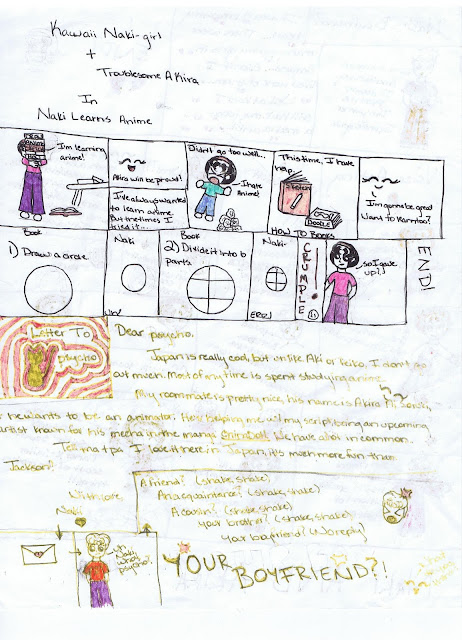 Kawaii Naki-girl
+
Troublesome Akira
In
Naki Learns Anime
I'm learning anime!
Akira will be proud!
I've always wanted
to learn anime.
But the times I
tried it...
Didn't go too well...
I hate
Anime!
This time, I have
help.
Stolen
DOODLE
HOW TO BOOKS
I'm gonna be great
Want to learn too?
Book
1) Draw a circle
Naki
Book
2) Divide it into 6
parts.
Naki
CRUMPLE!
so I gave
up!
END!
Letter To
psycho
Dear psycho,
Japan is really cool, but unlike Aki or Keiko, I don't go
out much. Most of my time is spent studying anime.
My roommate is pretty nice, his name is Akira
he wants to be an animator. He's helping me w/ my script being an upcoming
artist known for his mecha in the manga We have alot in common.
I love it here in Japan, it's much more fun than
Jackson!
With love
Naki
A friend? (shake, shake)
An acquaintence? (shake, shake)
A cousin? (shake, shake)
Your brother? (shake, shake)
Your boyfriend? (No reply)
uh
Naki
what
psycho?
YOUR BOYFRIEND?!